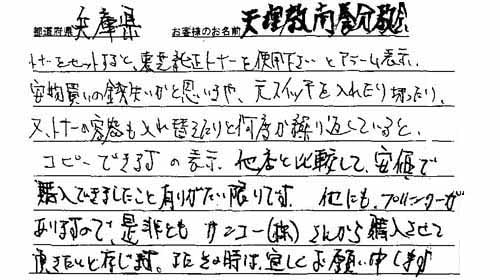 都道府県 兵庫県 お客様のお名前 天理教南養分教会
トナーをセットすると、東芝純正トナーを使用下さいとアラーム表示.
安物買いの銭失いかと思いきや、元スイッチを入れたり切ったり、
又、トナーの容器も入れ替えたりと何度か繰り返していると、
コピーできますの表示. 他店と比較して、安価で
購入できましたこと有りがたい限りです. 他にも、プリンターが
ありますので、是非とも サンコー(株)さんから購入させて
頂きたいと存じます. またその時は、宜しくお願い申します